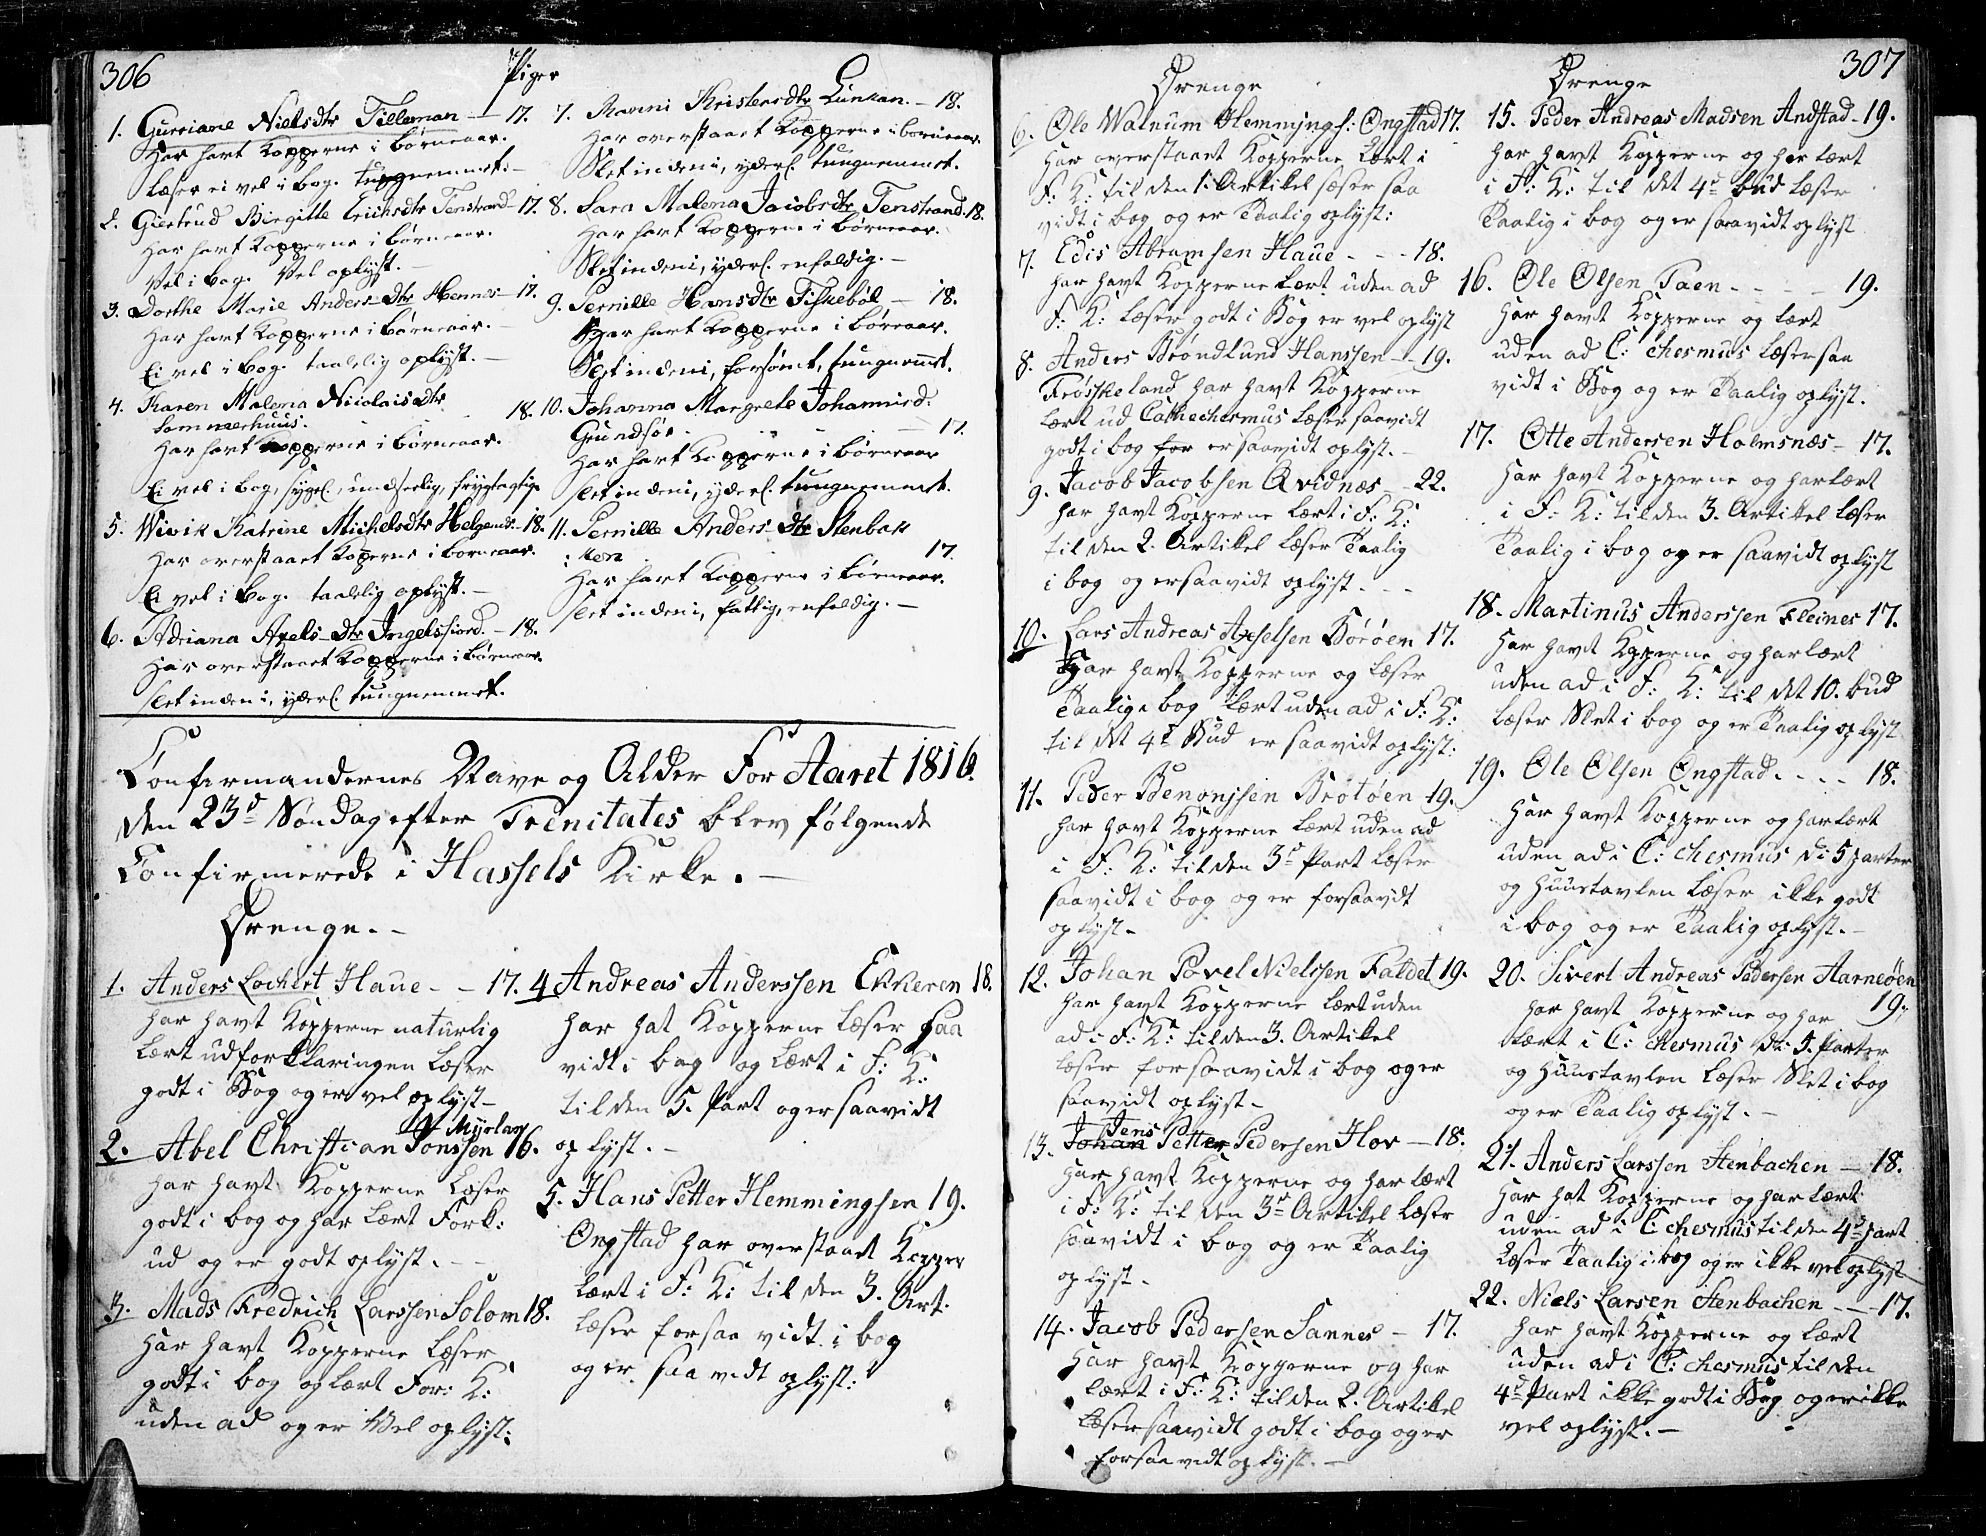 306
Piger
1. Gurriane Nielsdtr Tilleman — 17.
Har havt Kopperne i børneaar.
læser ei vel i bog. tungnemmet. —
2. Giertrud Birgitte Erichsdtr Tenstrand — 17.
Har havt Kopperne i børneaar.
Vel i bog. Vel oplyst. —
3. Dorthe Marie Anders-dtr Hennes — 17.
Har havt Kopperne i børneaar. —
Ei vel i bog. taalelig oplyst. —
4. Karen Malena Nicolaisdtr
Sommerhuus. 18.
Har havt Kopperne i børneaar.
Ei vel i bog, sygel., undseelig, frygtagtig.
5. Wivik Katrine Michelsdtr Helgenes — 18.
Har overstaaet Kopperne i børneaar.
Ei vel i bog. taalelig oplyst. —
6. Adriana Axels-dtr Ingelsfiord. — 18.
Har overstaaet Kopperne i børneaar.
Slet inden i, yderl. tungnemmet.
7. Ravni Kristensdtr Lunkan. — 18.
Har overstaaet Kopperne i børneaar.
Slet inden i, yderl. tungnemmet.
8. Sara Malena Jacobsdtr Tenstrand. 18.
Har havt Kopperne i børneaar.
Slet inden i, yderl. enfoldig. —
9. Pernille Hansdtr Fiskebøl — 18.
Har havt Kopperne i børneaar.
Slet inden i, forsømt, tungnemt.
10. Johanna Margrete Johannisd.
Grundfør — 17.
Har havt Kopperne i børneaar
slet inden i, yderl. tungnemmet.
11. Pernille Anders-dtr Stenbak
17.
Har havt Kopperne i børneaar.
slet inden i, fattig, enfoldig. —
Confirmandernes Nave og Alder For Aaret 1816.
den 23d Søndag efter Trenitates blev følgende
Confirmerede i Hassels Kirke. —
Drenge. —
1. Anders Lochert Haue — — 17.
har havt Kopperne naturlig
lært ud forklaringen læser
godt i Bog og er vel oplyst —
Myrland
2. Abel Christian Jonssen 16.
har havt Kopperne læser
godt i bog og har lært Fork:
ud og er godt oplyst. — —
3. Mads Fredrich Larssen Solom 18.
Har havt Kopperne læser
godt i bog og lært For: K:
uden ad og er Vel oplyst:
4 Andreas Anderssen Ekkeren 18.
har hat Kopperne læser saa
vidt i bog og lært i F: K:
til den 5. Part og er saavidt
oplyst. —
5. Hans Petter Hemmingsen 19.
Ongstad har overstaaet Kopper
lært i F: K: til den 3. Art.
læser forsaa vidt i bog
og er saa vidt oplyst:
307
Drenge
6. Ole Walnum Hemmings: Ongstad 17.
har overstaaet Kopperne lært i
F: K: til den 1. Artikel læser saa
vidt i bog og er Taalig oplyst:
7. Edis Abramsen Haue - - - 18.
har havt Kopperne lært uden ad
F: K: læser godt i Bog er vel oplyst
8. Anders Brøndlund Hanssen — 19.
Frøskeland har havt Kopperne
lært ud Cathechesmus læser saavidt
godt i bog for er saavidt oplyst. —
9. Jacob Jacobsen Qvidnæs — 22.
har havt Kopperne lært i F: K:
til den 2. Artikel læser Taalig
i bog og er saavidt oplyst. - - -
10. Lars Andreas Axselsen Børøen 17.
Har havt Kopperne og læser
Taalig i bog lært uden ad i F: K:
til det 4d Bud er saavidt oplyst:
11. Peder Benonjsen Brotøen 19.
har havt Kopperne lært uden ad
i F: K: til den 3d Part læser
saavidt i bog og er forsaavidt
oplyst.
12. Johan Povel Nielssen Faldet 19.
har havt Kopperne lært uden
ad i F: K: til den 3. Artikel
læser forsaavidt i bog og er
saavidt oplyst.
Jens
13. Johan Petter Pedersen Hov — 18.
Har havt Kopperne og har lært
i F: K: til den 3d Artikel læser
saavidt i bog og er Taalig
oplyst.
14. Jacob Pedersen Sannes — 17.
Har havt Kopperne og har
lært i F: K: til den 2. Artikel
læser saavidt godt i bog og er
forsaa vidt oplyst. —
Drenge
15. Peder Andreas Madsen Andstad. 19.
har havt Kopperne og har lært
i F: K: til det 4d bud læser
Taalig i bog og er saavidt oplyst
16. Ole Olsen Taen - - - - 19.
Har havt Kopperne og lært
uden ad C: chesmus læser saa
vidt i Bog og er Taalig oplyst.
17. Otte Andersen Holmsnæs — 17.
Har havt Kopperne og har lært
i F: K: til den 3. Artikel læser
Taalig i bog og er saavidt oplyst
18. Martinus Anderssen Fleines 17.
Har havt Kopperne og har lært
uden ad i F: K: til det 10. bud
læser Slet i bog og er Taalig oplyst
19. Ole Olsen Ongstad - - - - 18.
Har havt Kopperne og har lært
uden ad i C: chesmus di 5 parter
og Huustavlen læser ikke godt
i bog og er Taalig oplyst. —
20. Sivert Andreas Pedersen Aarneøen
19.
har havt Kopperne og har
lært i C: chesmus di 5. Parter
og Huustavlen læser Slet i bog
og er Taalig oplyst. —
21. Anders Larssen Stenbachen — 18.
Har hat Kopperne og har lært
uden ad i C: chesmus til den 4d part
læser Taalig i bog og er ikke vel oplyst
22. Niels Larsen Stenbachen - — 17.
har havt Kopperne og lært
uden ad i C: chesmus til den
4d Part ikke godt i Bog og er ikke
vel oplyst. —